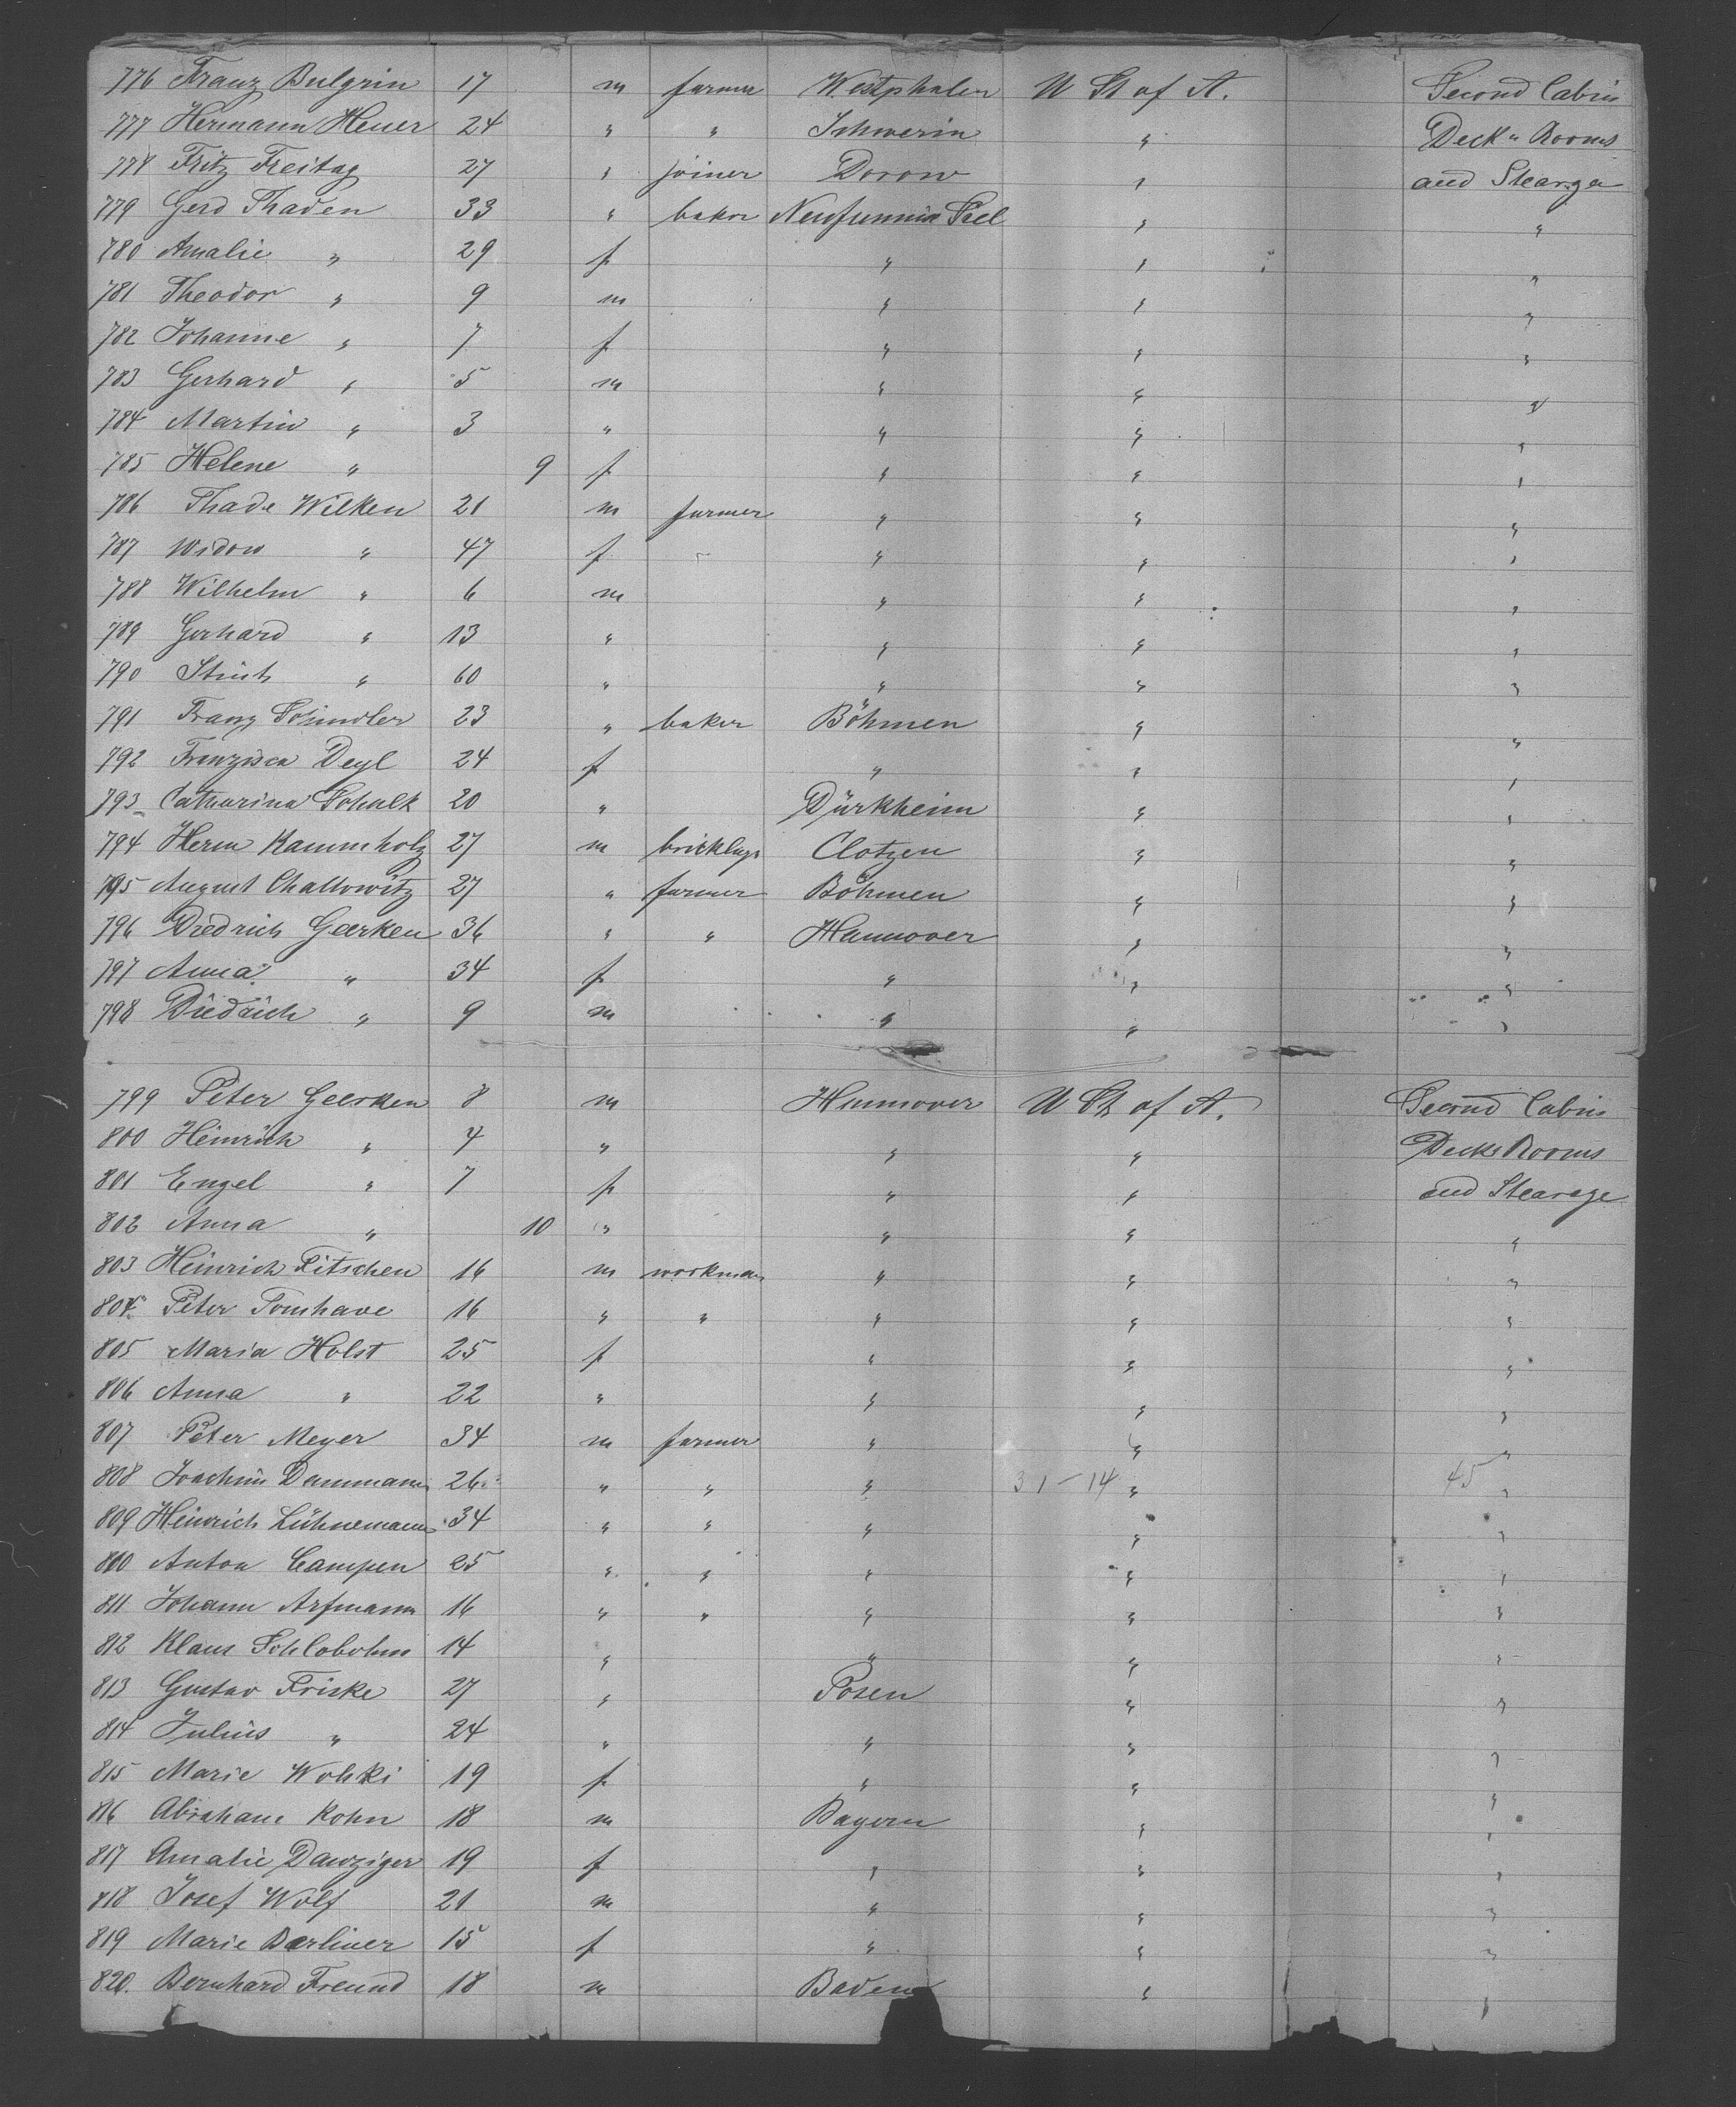 776 Franz Bulgrin 17 m farmer Westphalen U St of A. Second Cabin
777 Hermann Heuer 24 " " Schwerin " Deck " Rooms
778 Fritz Freitag 27 " joiner Dorow " and Stearge
779 Gerd Thaden 33 " baker Neufunnix Siel " "
780 Amalie " 29 f " " "
781 Theodor " 9 m " " "
782 Johanne " 7 f " " "
783 Gerhard " 5 m " " "
784 Martin " 3 " " " "
785 Helene " 9 f " " "
786 Thade Wilken 21 m farmer " " "
787 Widow " 47 f " " "
788 Wilhelm " 6 m " " "
789 Gerhard " 13 " " " "
790 " 60 " " " "
791 Franz Schindler 23 " baker Böhmen " "
792 Franzisca Deyl 24 f " " "
793 Catharina Schalk 20 " Dürkheim " "
794 Herm Kammholz 27 m bricklayr Clotzen " "
795 August Challowitz 27 " farmer Böhmen " "
796 Diedrich Geerken 36 " " Hannover " "
797 Anna " 34 f " " "
798 Diedrich " 9 m " " "
799 Peter Geerken 8 m Hannover U St of A. Second Cabin
800 Heinrich " 4 " " " Decks Rooms
801 Engel " 7 f " " and Stearage
802 Anna " 10 " " " "
803 Heinrich Fitschen 16 m workman " " "
804 Peter Tomhave 16 " " " " "
805 Maria Holst 25 f " " "
806 Anna " 22 " " " "
807 Peter Meyer 34 m farmer " " "
808 Joachim Dammann 26 " " " 31-14 " 45 "
809 Heinrich Lühnemann 34 " " " " "
810 Anton Campen 25 " " " " "
811 Johann Arfmann 16 " " " " "
812 Klaus Schlobohm 14 " " " "
813 Gustav Friske 27 " Posen " "
814 Julius " 24 " " " "
815 Marie Wohki 19 f " " "
816 Abraham Kohn 18 m Bayern " "
817 Amalie Danziger 19 f " " "
818 Josef Wolf 21 m " " "
819 Marie Berliner 15 f " " "
820. Bernhard Freund 18 m Baden " "